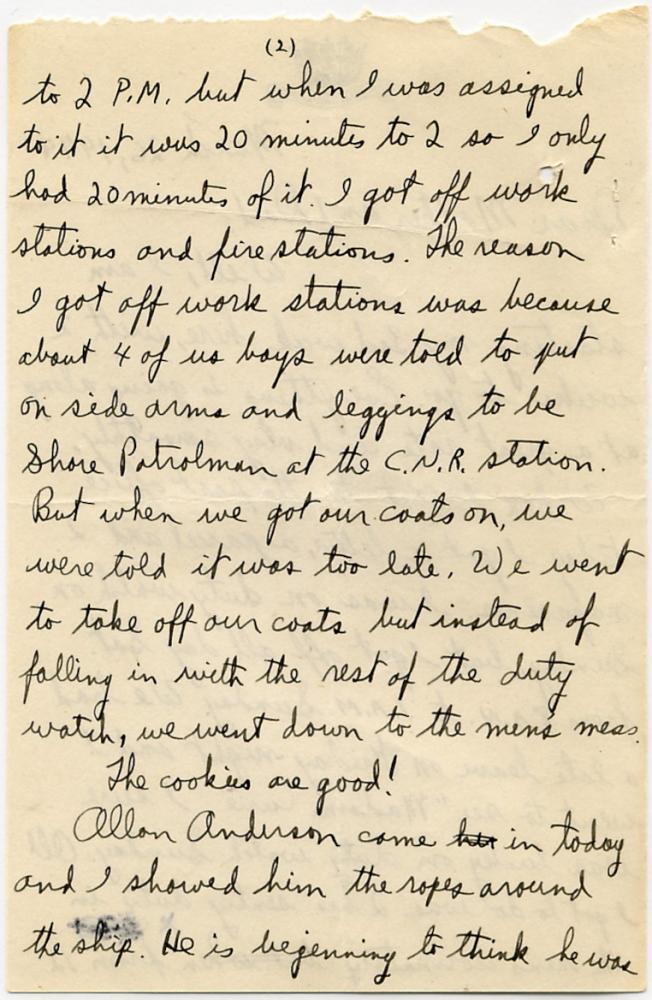 (2)
to 2 P.M. but when I was assigned
to it it was 20 minutes to 2 so I only
had 20 minutes of it. I got off work
stations and fire stations. The reason
I got off work stations was because
about 4 of us boys were told to put
on side arms and leggings to be
Shore Patrolman at the C.N.R. station.
But when we got our coats on, we
were told it was too late. We went
to take off our coats but instead of
falling in with the rest of the duty
watch, we went down to the men's mess.
The cookies are good!
Allan Anderson came in today
and I showed him the ropes around
the ship. He is beginning to think he was